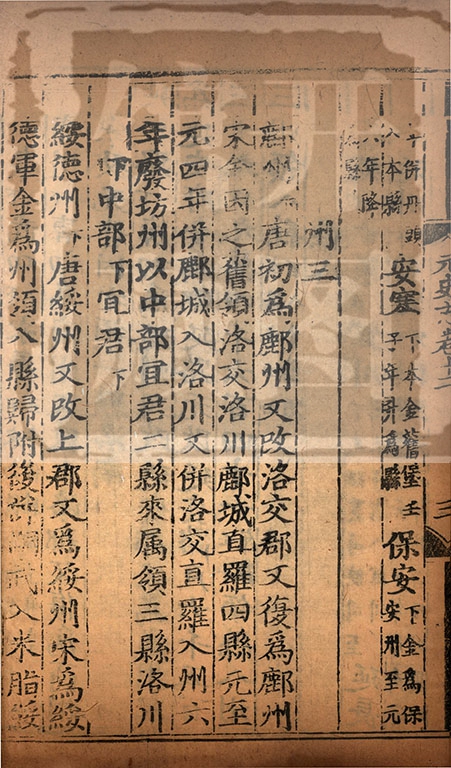 併丹頭
入本縣
安塞 下 本金舊堡壬
子年升爲縣
保安 下 金爲保
安州至元
六年降
爲縣
州三
鄜州 下 唐初爲鄜州又改洛交郡又復爲鄜州
宋金因之舊領洛交洛川鄜城直羅四縣元至
元四年併鄜城入洛川又併洛交直羅入州六
年廢坊州以中部宜君二縣來属領三縣洛川
下 中部 下 宜君 下
綏德州 下 唐綏州又改上郡又爲綏州宋爲綏
德軍金爲州領八縣歸附後併嗣武入米脂綏